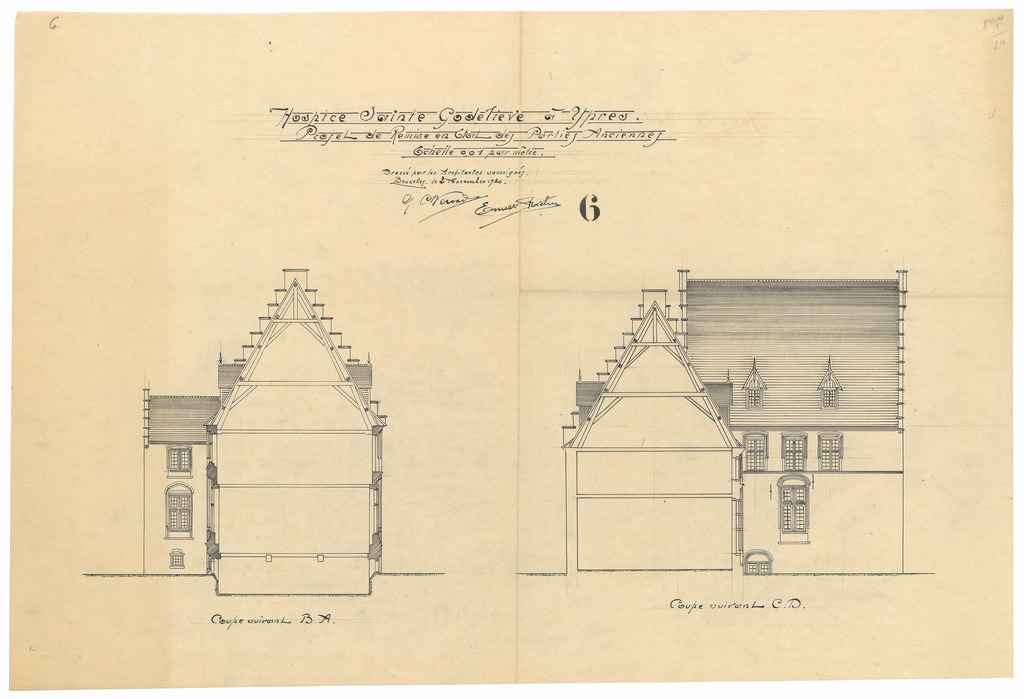 6
Hospice Sainte Godelieve à Ypres.
Projet de Remise en Etat des Parties Anciennes
Echelle 0,01 par mètre.
Dressé par les Architectes soussignés.
Bruxelles, le 2 Novembre
Ernest
6
Coupe suivant B.A.
Coupe suivant C.D.